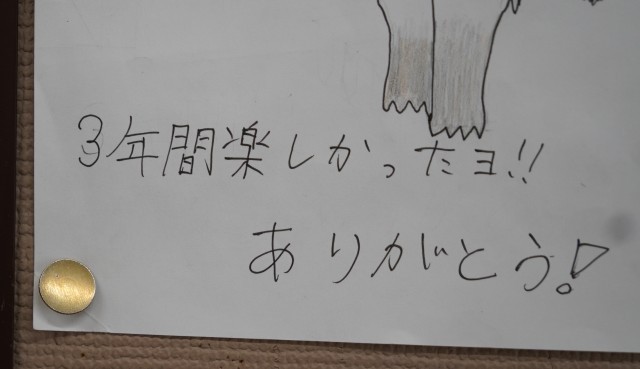 3年間楽しかったヨ!!
ありがとう!